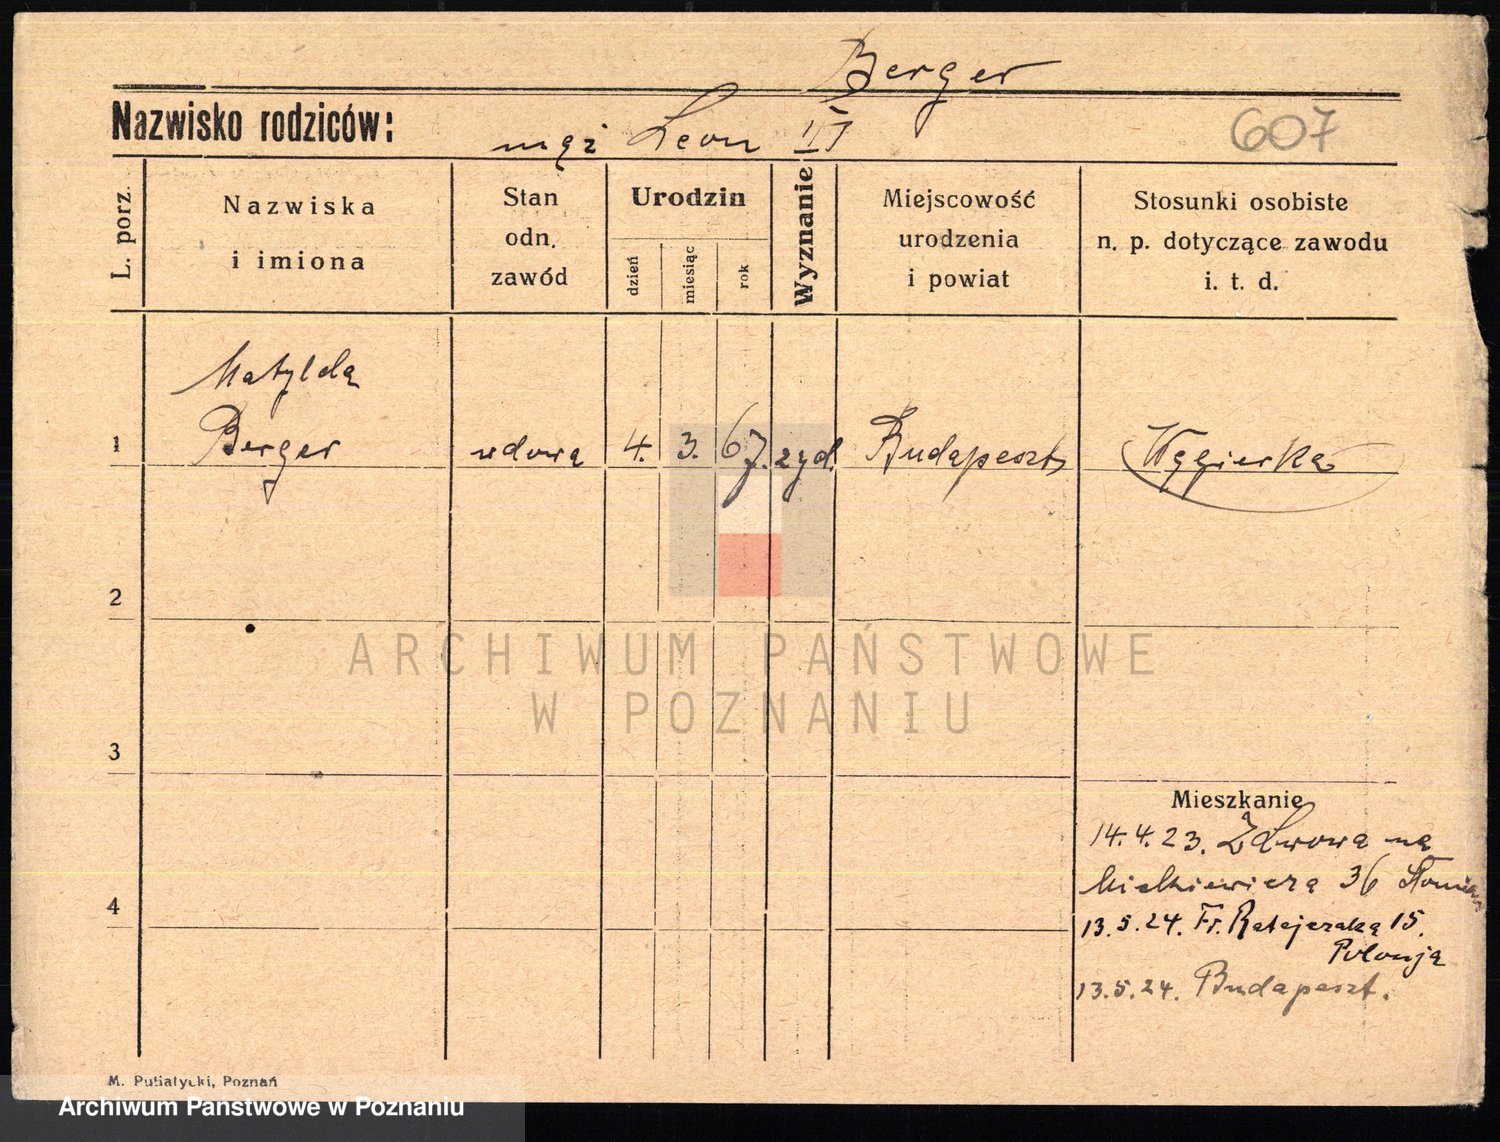 Berger
Nazwisko rodziców:
mąż Leon
607
L. porz.
Nazwiska
i imiona
Stan
odn.
zawód
Urodzin
dzień
miesiąc
rok
Wyznanie
Miejscowość
urodzenia
i powiat
Stosunki osobiste
n. p. dotyczące zawodu
i. t. d.
Matylda
1 Berger wdowa 4. 3. 67. żyd. Budapeszt Węgierka
2
3
4
ARCHIWUM PAŃSTWOWE
W POZNANIU
Mieszkanie
14.4.23. Z Lwowa na
Mickiewicza 36
13.5.24. Fr. Ratajczaka 15.
Polonja
13.5.24. Budapeszt.
M. Putiatycki, Poznań
Archiwum Państwowe w Poznaniu